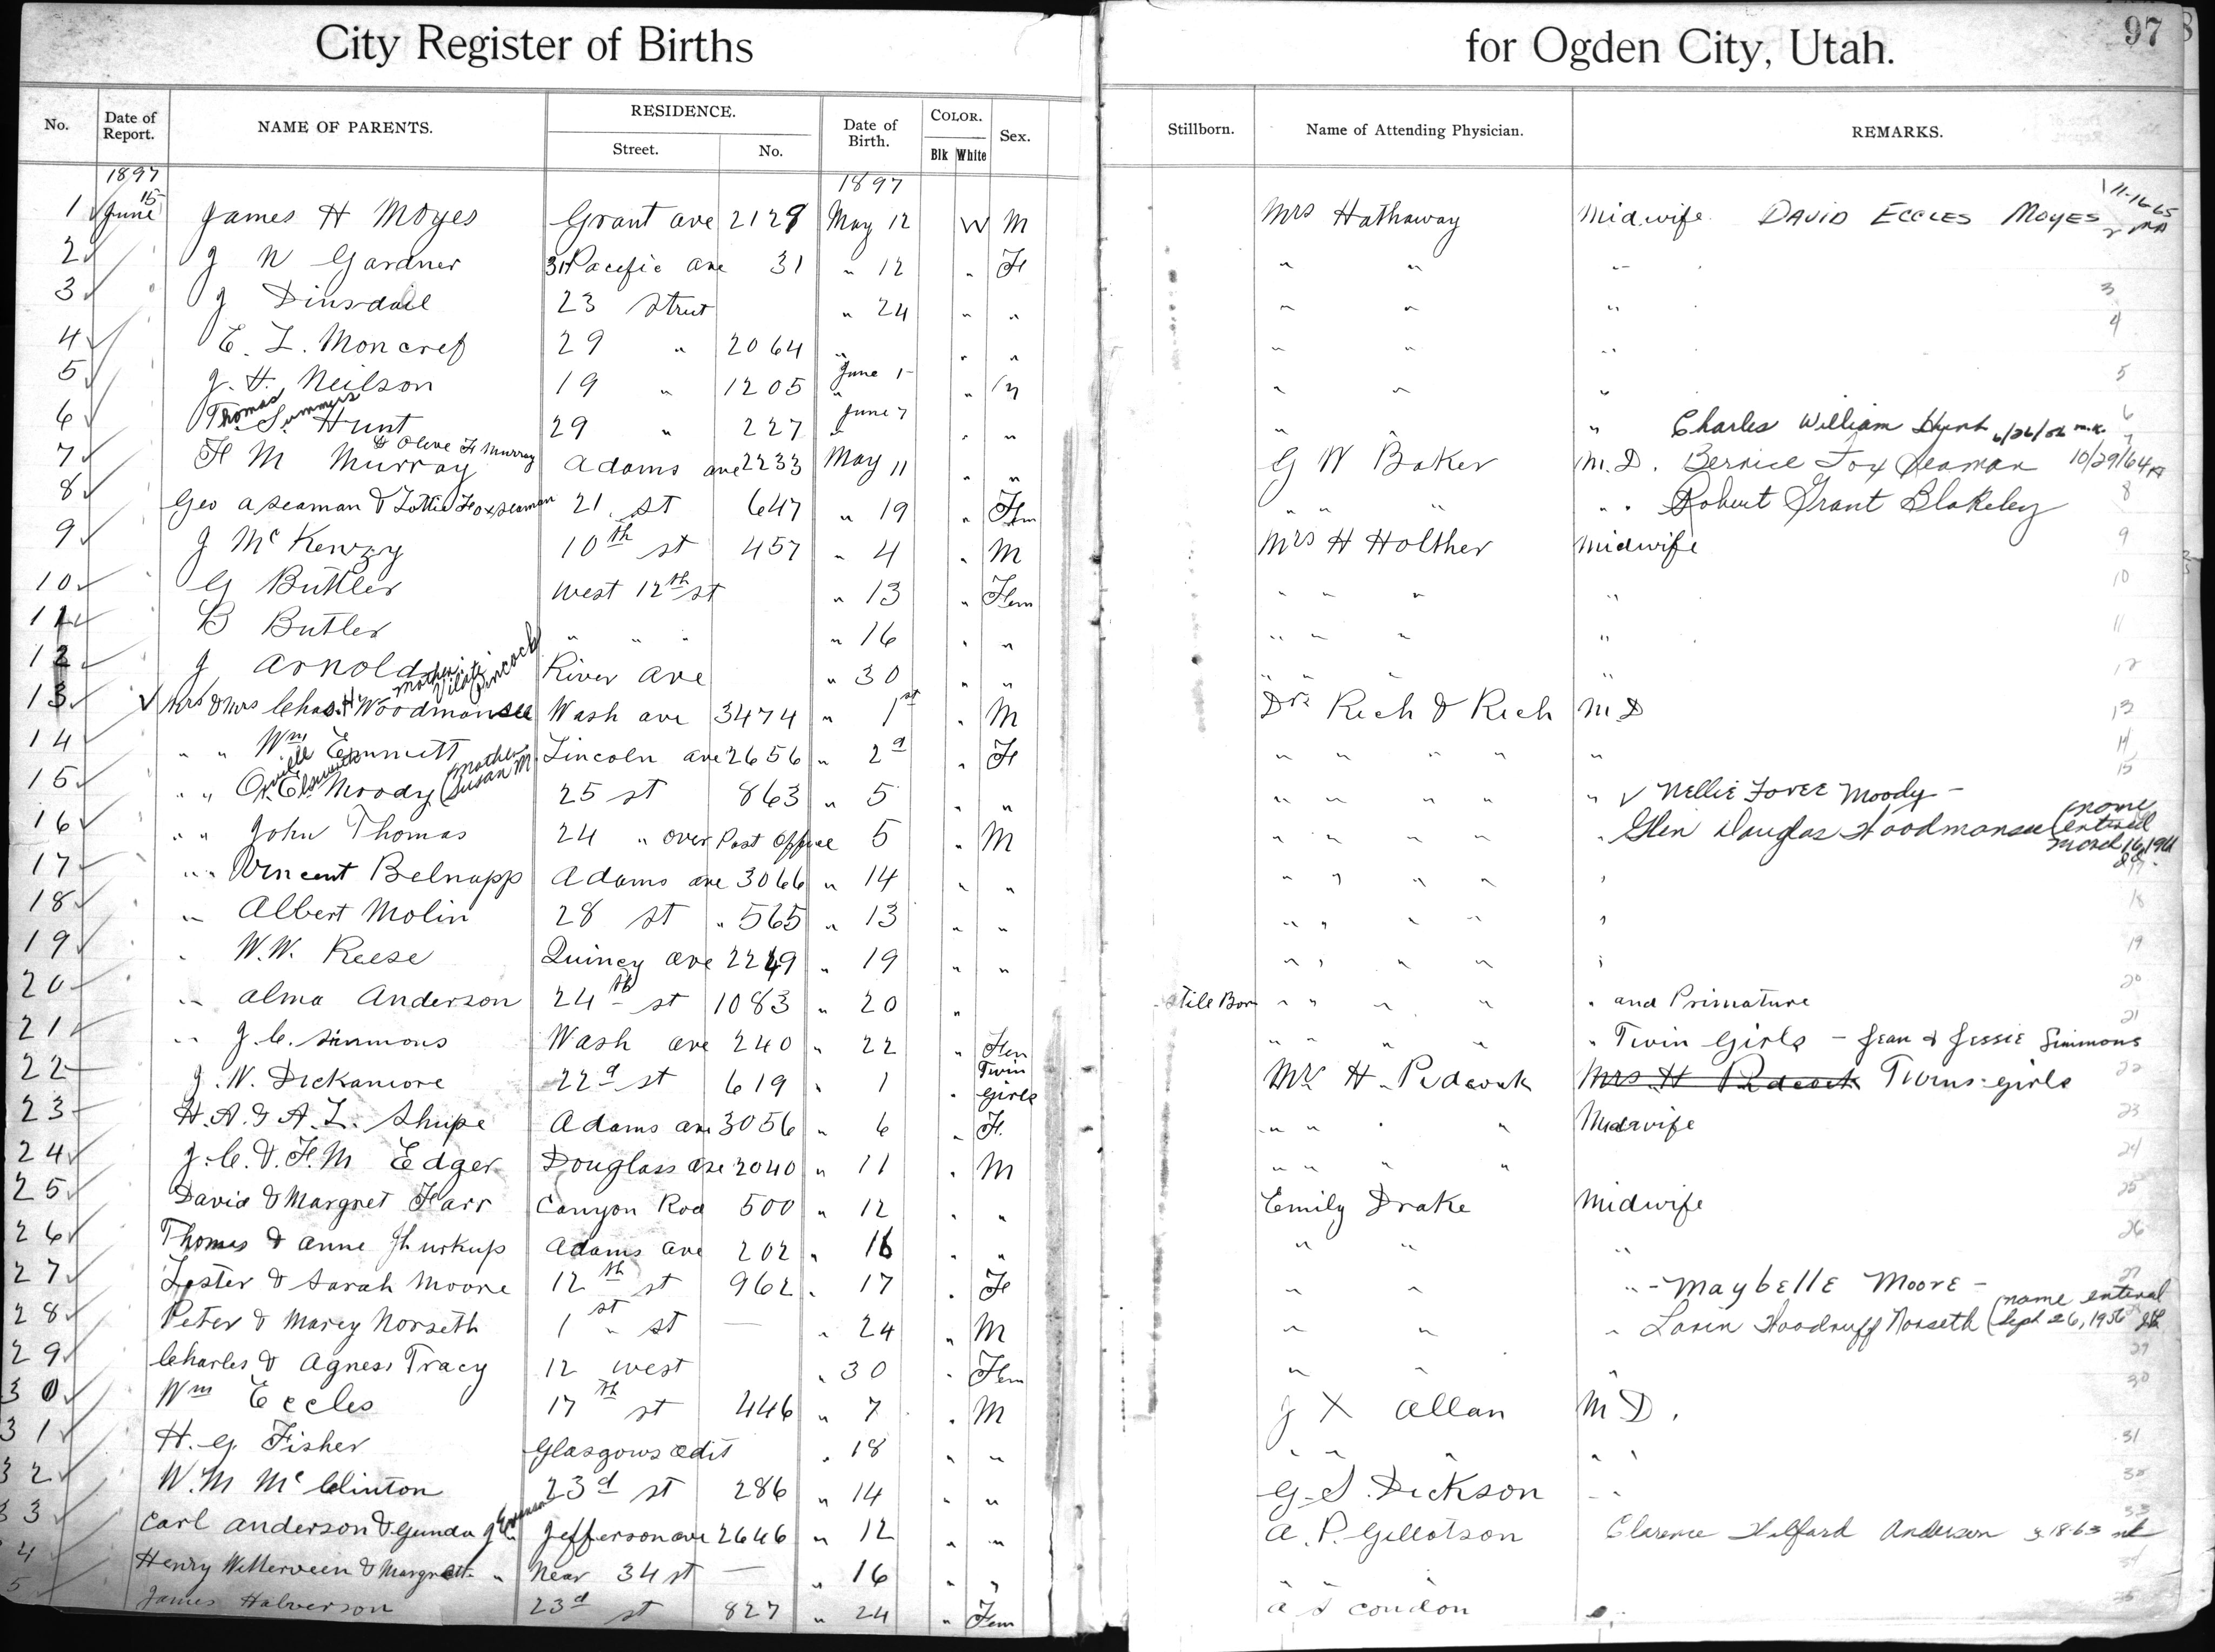 City Register of Births for Ogden City, Utah. 97
No. Date of Report. NAME OF PARENTS. RESIDENCE. Street. No. Date of Birth. COLOR. Blk White Sex. Stillborn. Name of Attending Physician. REMARKS.
1897 1897
1 June 15 James H Moyes Grant ave 2129 May 12 W M Mrs Hathaway Midwife DAVID ECCLES MOYES 11-16-65
2 J W Gardner Pacific ave 31 " 12 " F " " "
3 J Dinsdall 23 Street " 24 " " " " " 3
4 E. L. Moncref 29 " 2064 " " " " " " 4
5 J. H. Neilson 19 " 1205 June 1 " M " " " 5
6 Thomas Summers Hunt 29 " 227 June 7 " " " " Charles William Hunt 6/26/56 m.k. 6
7 F M Murray & Olive F Murray Adams ave 2233 May 11 " " G W Baker M.D. Bernice Fox Seaman 10/29/64 7
8 Geo A Seaman & Lottie Fox Seaman 21. st 647 " 19 " Fem " " " " " Robert Grant Blakeley 8
9 J McKenzy 10th st 457 " 4 " M Mrs H Holther Midwife 9
10 G Buttler West 12th st " 13 " Fem " " " " 10
11 B Butler " " " " 16 " " " " " " 11
12 J Arnold River Ave " 30 " " " " " " 12
13 Mrs & Mrs Chas. H. Woodmansee Mother: Vilate Pincock Wash ave 3474 " 1st " M Drs Rich & Rich M D 13
14 " " Wm Emmett Lincoln ave 2656 " 2d " F " " " " " 14
15 " " Orville Elsworth Moody (Mother Susan M 25 st 863 " 5 " " " " " " " NELLIE FOREE Moody - 15
16 " " John Thomas 24 " over Post Office 5 M " " " " " Glen Douglas Woodmansee (name entered March 16, 1961
17 " " Vincent Belnapp Adams ave 3066 " 14 " " " " " "
18 " Albert Molin 28 st " 565 " 13 " " " " " " 18
19 " W.W. Reese Quincy ave 2249 " 19 " " " " " " 19
20 " Alma Anderson 24th st 1083 " 20 " Stile Born " " " " " and Primature 20
21 " J. C. Simmons Wash ave 240 " 22 " Fem " " " " " Twin Girls - JEAN & JESSIE Simmons 21
22 J. N. Dickamore 22d st 619 " 1 " Twin Girls Mrs H. Pidcock Mrs. H Pidcock Twins-girls 22
23 H. A. & A. L. Shupe Adams ave 3056 " 6 " F. " " " " Midwife 23
24 J. C. & F. M Edger Douglass ave 2040 " 11 " M " " " " 24
25 David & Margret Farr Canyon Roa 500 " 12 " " Emily Drake Midwife 25
26 Thomas & Anne Adams ave 202 " 16 " " " " " 26
27 Lester & Sarah Moore 12th st 962 " 17 " F " " " - MAYBELLE MOORE - 27
28 Peter & Marey Norseth 1st " st — " 24 " M " " " Lorin Woodruff Norseth (name entered Sept 26, 1956
29 Charles & Agness Tracy 12 West " 30 " Fem " " " 29
30 Wm Eccles 17th st 446 " 7 " M J X Allan M D. 30
31 H. G. Fisher Glasgows Adit " 18 " " " " " " " 31
32 W. M McClinton 23d st 286 " 14 " " G. S. Dickson " 32
33 Carl Anderson & Gunda Jefferson ave 2646 " 12 " " A. P. Gillotson Clarence Anderson 3-18-63 33
4 Henry Witterveen & Margrett " Near 34 st — " 16 " " " " " 34
5 James Halverson 23d st 827 " 24 " Fem A S Condon 35